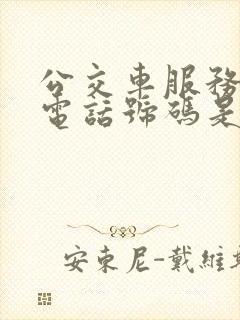 公交車服務
電話號碼是
安東尼-戴維斯